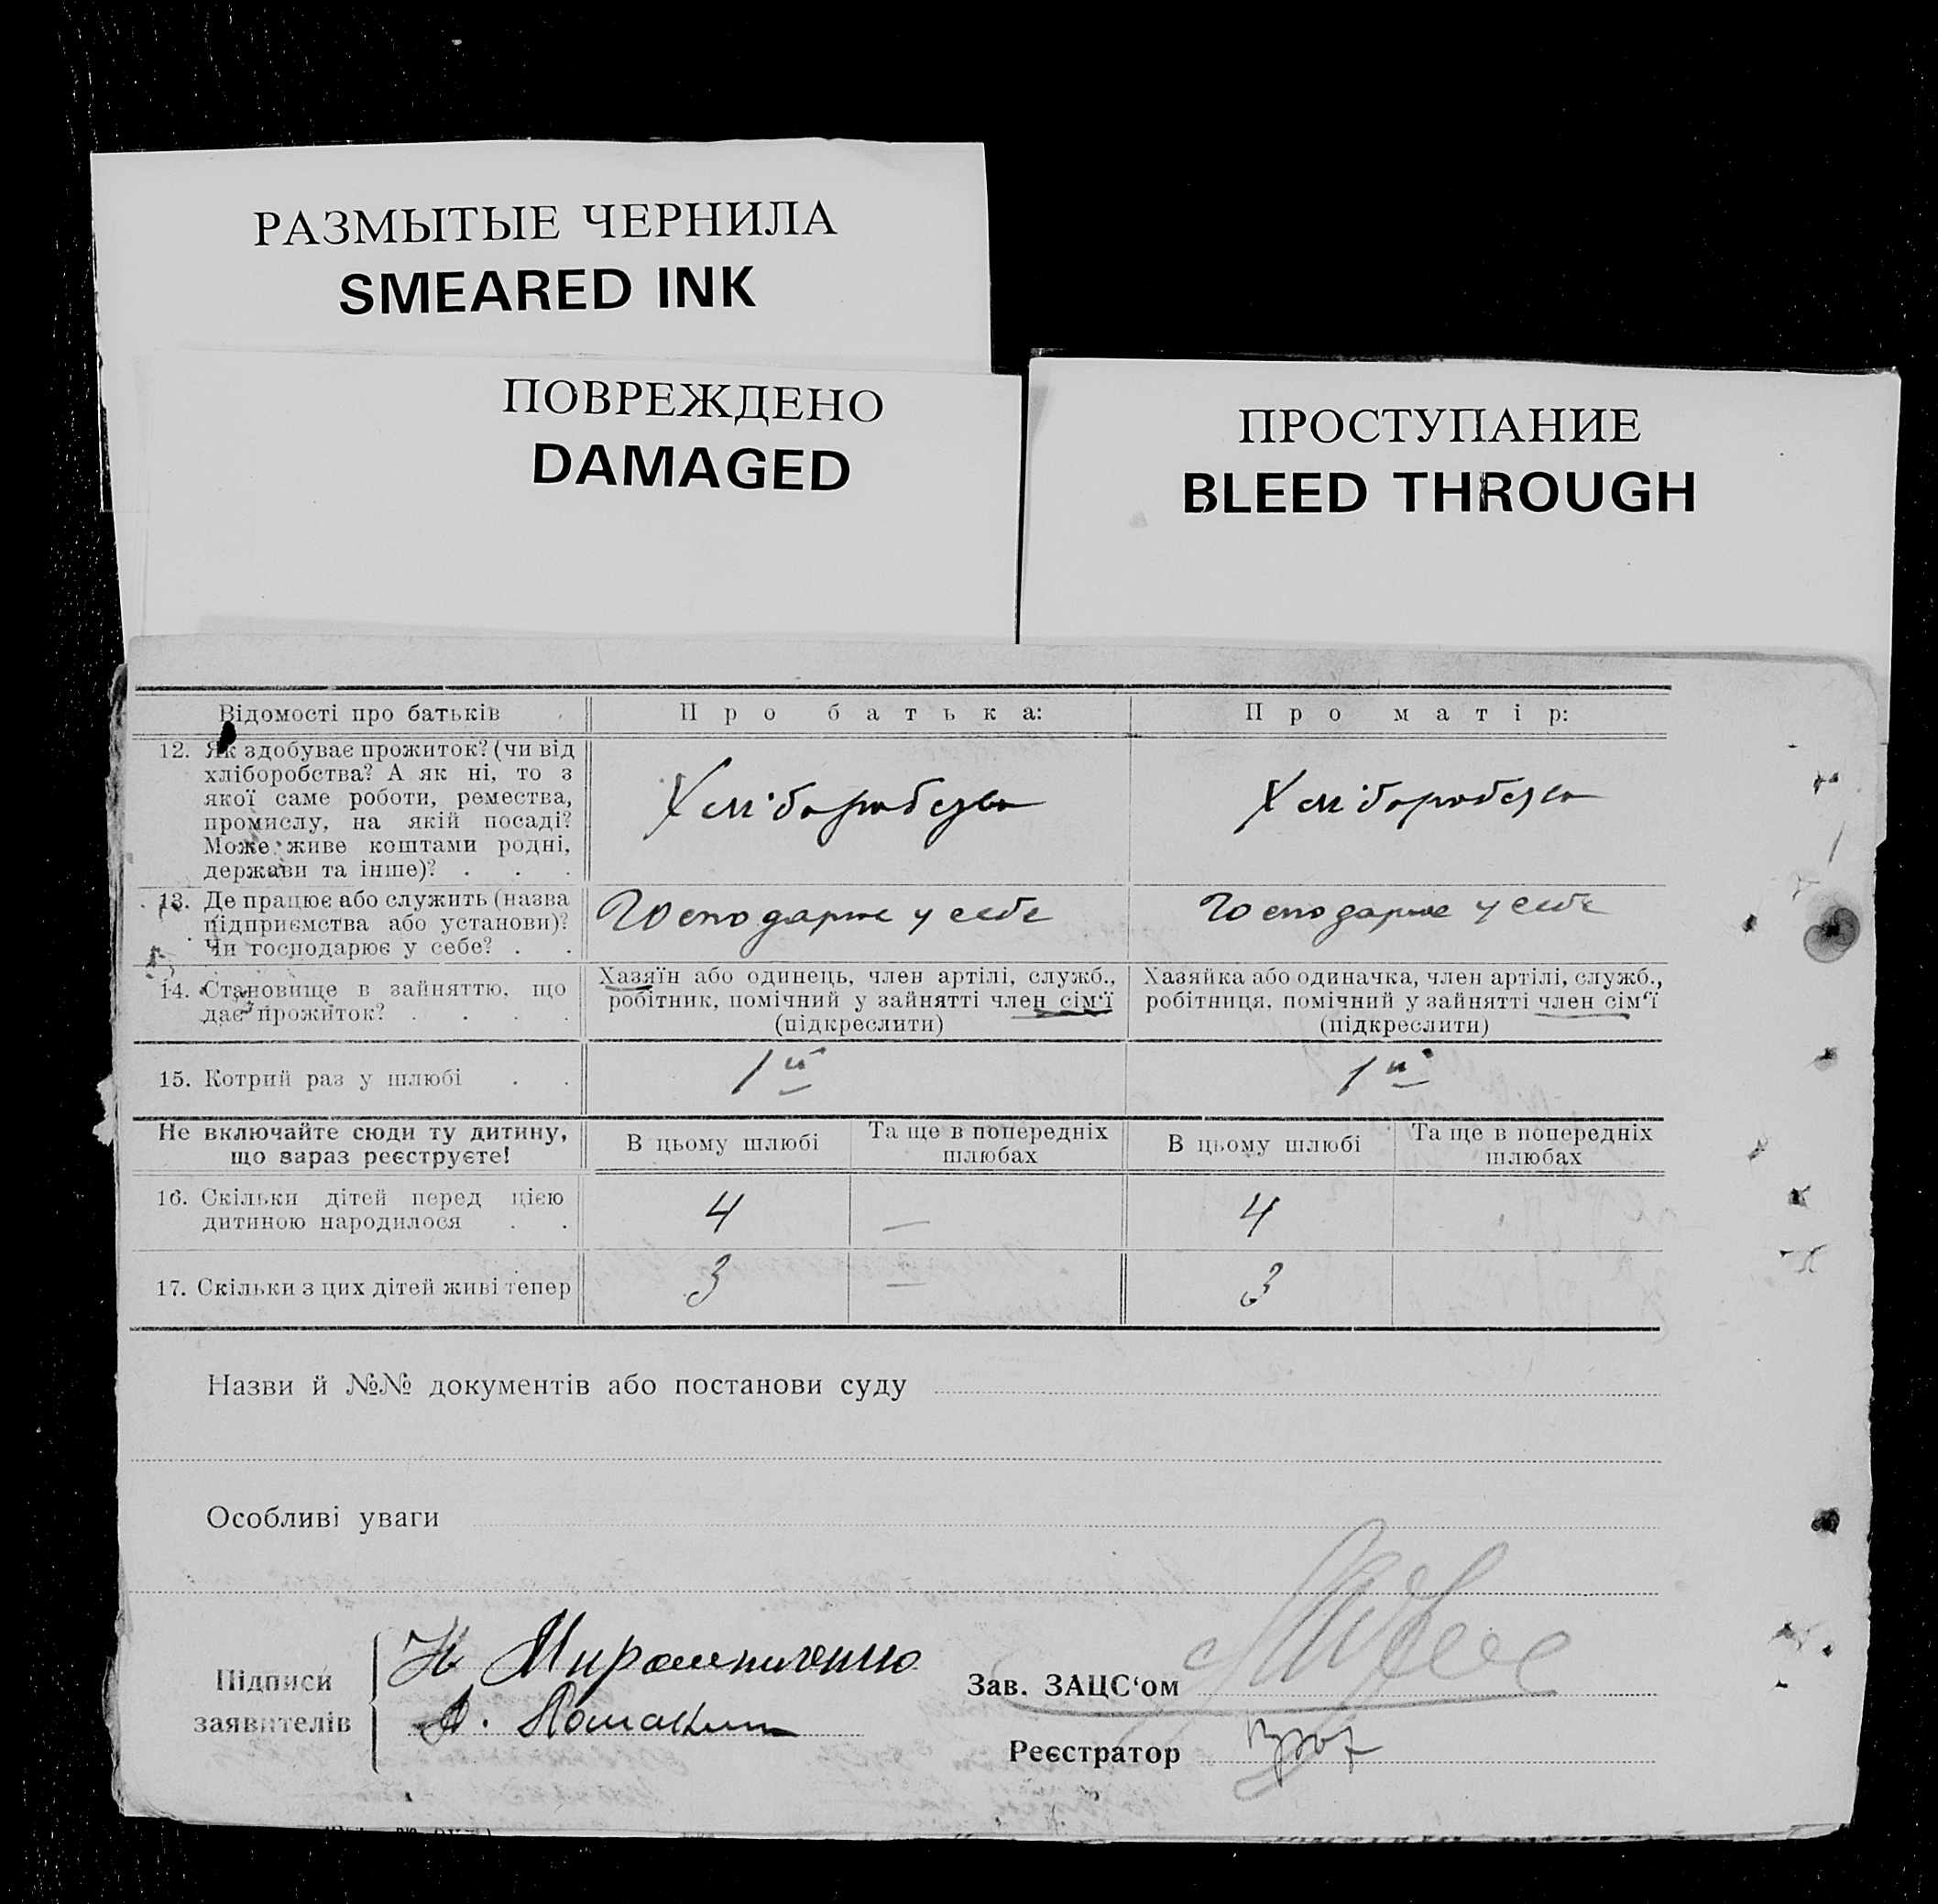 РАЗМЫТЫЕ ЧЕРНИЛА
SMEARED INK
ПОВРЕЖДЕНО
DAMAGED
ПРОСТУПАНИЕ
BLEED THROUGH
Відомості про батьків
Про батька:
Про матір:
12. Як здобуває прожиток? (чи від
хліборобства? А як ні, то з
якої саме роботи, ремества,
промислу, на якій посаді?
Може живе коштами родні,
держави та інше)? . . .
Хліборобство
Хліборобство
13. Де працює або служить (назва
підприємства або установи)?
Чи господарює у себе? . .
Господарює у себе
Господарює у себе
14. Становище в зайняттю, що
дає прожиток? . . . .
Хазяїн або одинець, член артілі, служб.,
робітник, помічний у зайнятті член сім‘ї
(підкреслити)
Хазяйка або одиначка, член артілі, служб.,
робітниця, помічний у зайнятті член сім‘ї
(підкреслити)
15. Котрий раз у шлюбі . .
1й
1й
Не включайте сюди ту дитину,
що зараз реєструєте!
В цьому шлюбі
Та ще в попередніх
шлюбах
В цьому шлюбі
Та ще в попередніх
шлюбах
16. Скільки дітей перед цією
дитиною народилося . .
4
—
4
17. Скільки з цих дітей живі тепер
3
—
3
Назви й №№ документів або постанови суду
Особливі уваги
Підписи
заявителів
Мирошниченко
Зав. ЗАЦС‘ом
Реєстратор